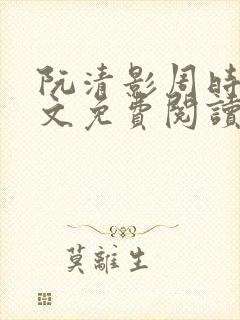 阮清影周時
文免費閱讀
莫離生